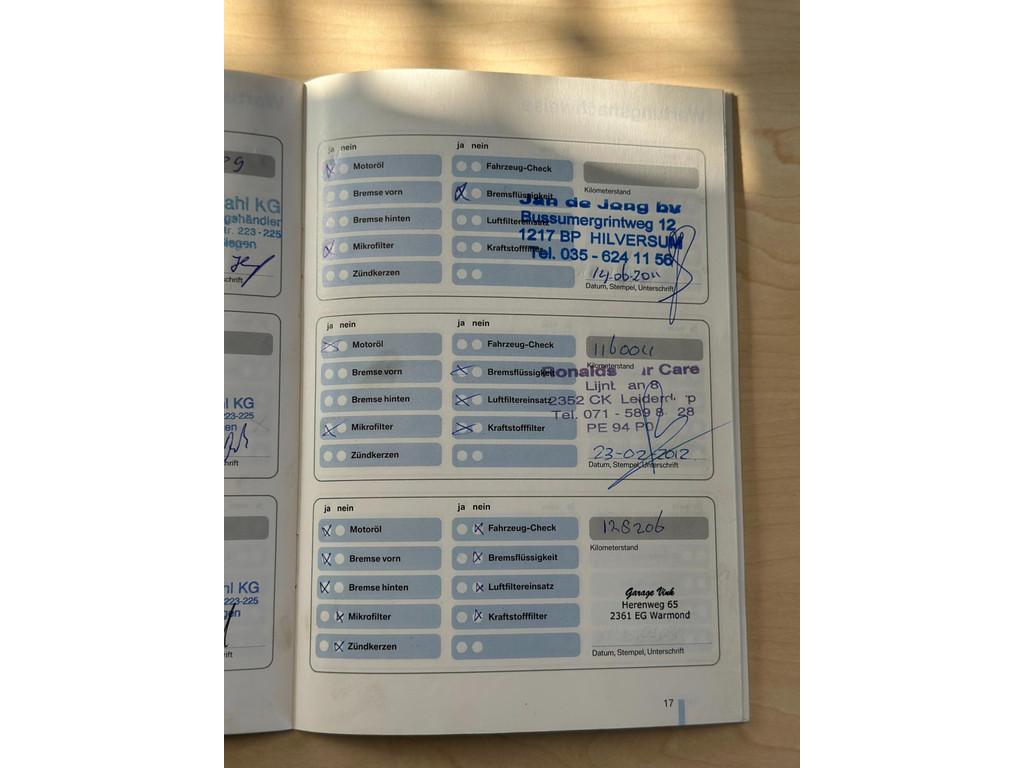 ahl KG
gshändler
tr. 223-225
chrift
l KG
223-225
en
hrift
hl KG
223-225
gen
rift
ja nein
ja nein
Motoröl
Fahrzeug-Check
Kilometerstand
Bremse vorn
Bremsflüssigkeit
Jan de Jong bv
Bremse hinten
Luftfiltereinsatz
Bussumergrintweg 12
1217 BP HILVERSUM
Mikrofilter
Kraftstofffilter
Tel. 035 - 624 11 56
Zündkerzen
14-06-2011
Datum, Stempel, Unterschrift
ja nein
ja nein
Motoröl
Fahrzeug-Check
Kilometerstand
Bremse vorn
Bremsflüssigkeit
Ronalds r Care
Lijnt an 8
Bremse hinten
Luftfiltereinsatz
2352 CK Leiderd p
Tel. 071 - 589 8 28
Mikrofilter
Kraftstofffilter
PE 94 PO
Zündkerzen
23-02-2012
Datum, Stempel, Unterschrift
ja nein
ja nein
Motoröl
Fahrzeug-Check
128206
Kilometerstand
Bremse vorn
Bremsflüssigkeit
Bremse hinten
Luftfiltereinsatz
Garage Vink
Herenweg 65
2361 EG Warmond
Mikrofilter
Kraftstofffilter
Zündkerzen
Datum, Stempel, Unterschrift
17